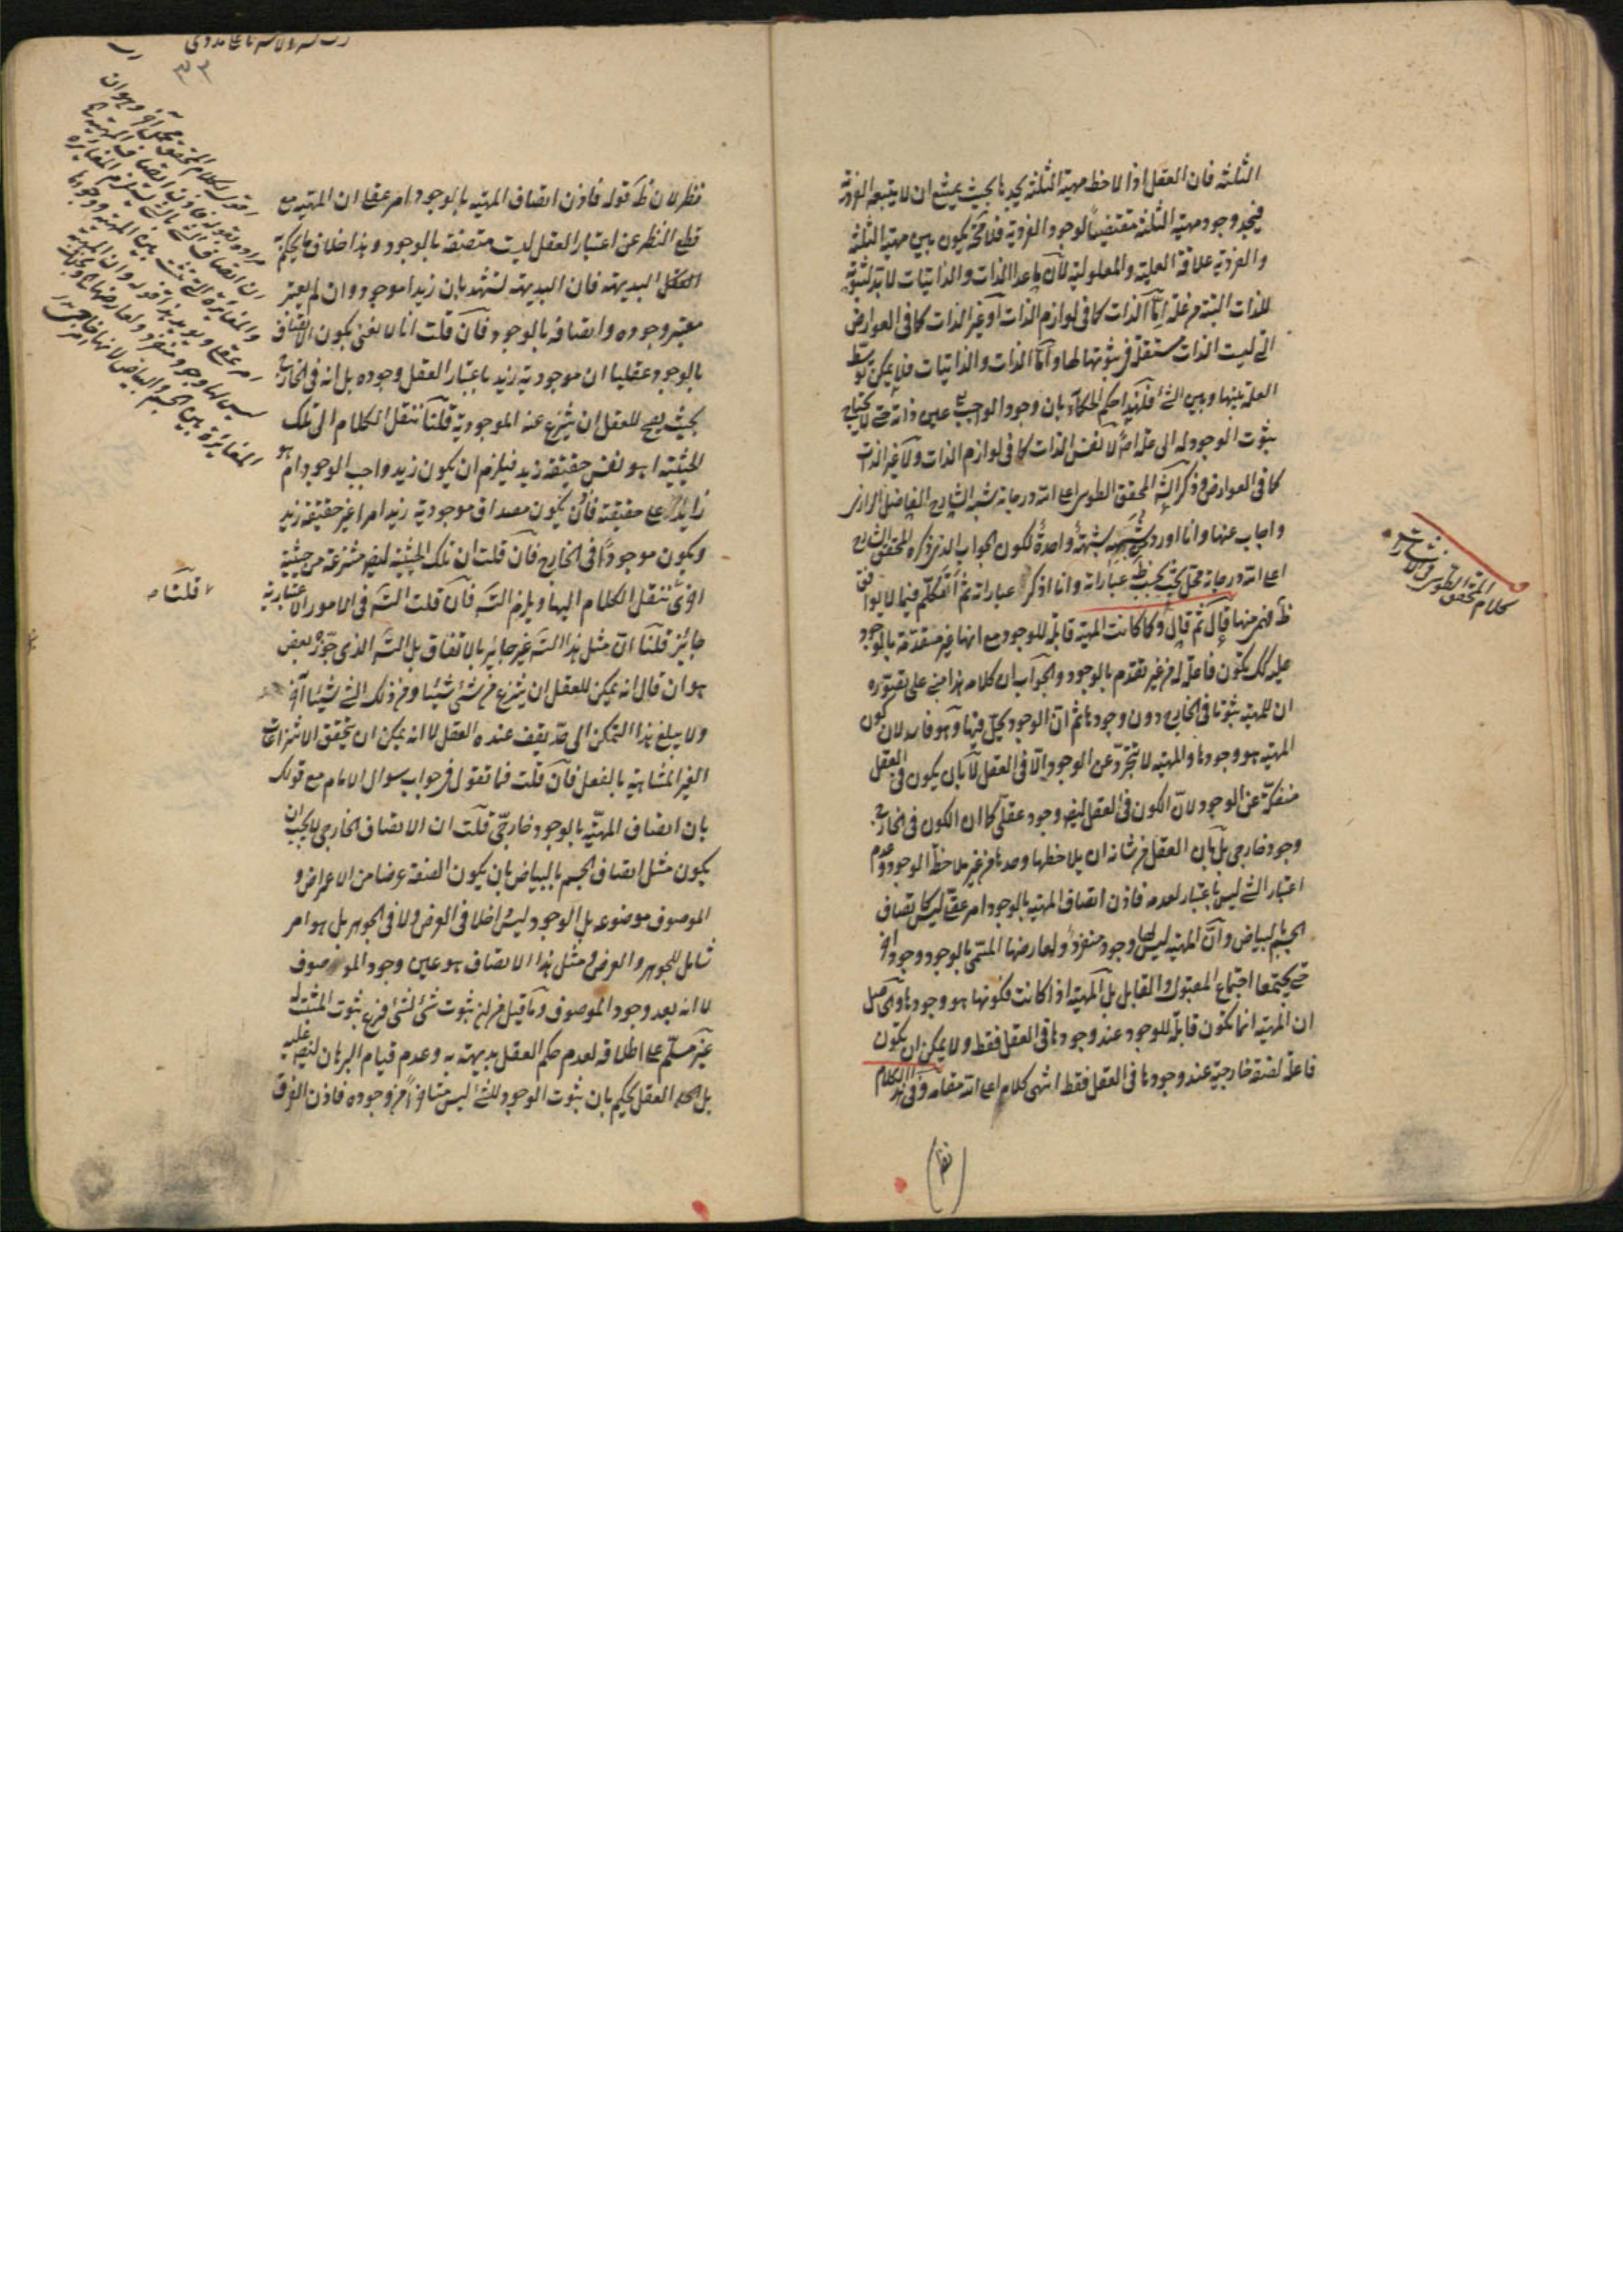 الثلثة فان العقل اذا لاحظ مهية الثلثة يجدها بحيث يمتنع ان لا يتبعه الفردية
فيجد وجود مهية الثلثة مقتضيا لوجود الفردية فلا محة يكون بين مهية الثلثة
والفردية علاقة العلية والمعلولية لان ما عدا الذات والذاتيات لا بد لثبوته
للذات البتة من علة اما الذات كما فى لوازم الذات او غير الذات كما فى العوارض
التى ليست الذات مستقلة فى ثبوتها لها واما الذات والذاتيات فلا يمكن توسط
العلة بينها وبين الشئ فلهذا حكم الحكماء بان وجود الواجب عين ذاته حتى لا يحتاج
ثبوت الوجود له الى علة اصلا لا نفس الذات كما فى لوازم الذات ولا غير الذات
كما فى العوارض وذكر المحقق الطوسى اعلى الله درجاته شبه الشارح الفاضل الرازى
واجاب عنها وانا اورد شبهة واحدة لكون الجواب الذى ذكره المحقق الشارح
اعلى الله درجاته محل بحث بحسب ظ عباراته وانا اذكر عباراته ثم اتكلم فيما لا يوافق
ظ منها قال ثم قال وكما كانت المهية قابلة للوجود مع انها غير متقدمة بالوجود
عليه كك تكون فاعلة له من غير تقدم بالوجود والجواب ان كلامه هذا مبنى على تصوره
ان للمهية ثبوتا فى الخارج دون وجودها ثم ان الوجود يحل فيها وهو فاسد لان كون
المهية هو وجودها والمهية لا تتجرد عن الوجود الا فى العقل لا بان يكون فى العقل
منفكة عن الوجود لان الكون فى العقل ايضا وجود عقلى كما ان الكون فى الخارج
وجود خارجى بل بان العقل من شانه ان يلاحظها وحدها من غير ملاحظة الوجود وعدم
اعتبار الشئ ليس باعتبار لعدمه فاذن اتصاف المهية بالوجود امر عقلى ليس كاتصاف
الجسم بالبياض وان المهية ليس لها وجود منفرد ولعارضها المسمى بالوجود وجود اخر
حتى يجتمعا اجتماع المقبول والقابل بل المهية اذا كانت فكونها هو وجودها والحاصل
ان المهية انما تكون قابلة للوجود عند وجودها فى العقل فقط ولا يمكن ان يكون
فاعلة لصفة خارجية عند وجودها فى العقل فقط انتهى كلامه اعلى الله مقامه وفى هذا الكلام
نظر
كلام المحقق الطوسى فى شرح الاشارات
٣٣
نظر لان ظ قوله فاذن اتصاف المهية بالوجود امر عقلى ان المهية مع
قطع النظر عن اعتبار العقل ليست متصفة بالوجود وهذا خلاف ما يحكم به
العقل البديهة فان البديهة تشهد بان زيدا موجود وان لم يعتبر
معتبر وجوده واتصافه بالوجود فان قلت انا لا نعنى بكون الاتصاف
بالوجود عقليا ان موجودية زيد باعتبار العقل وجوده بل انه فى الخارج
بحيث يصح للعقل ان ينتزع عنه الموجودية قلنا ننقل الكلام الى تلك
الحيثية اهو نفس حقيقة زيد فيلزم ان يكون زيد واجب الوجود ام هو
زايد على حقيقته فان يكون مصداق موجودية زيد امرا غير حقيقة زيد
ويكون موجودا فى الخارج فان قلت ان تلك الحيثية ايضا منتزعة من حيثية
اخرى ننقل الكلام اليها ويلزم التسه فان قلت التسه فى الامور الاعتبارية
جائز قلنا ان مثل هذا التسه غير جائز بالاتفاق بل التسه الذى جوزه بعض
هو ان قال انه يمكن للعقل ان ينتزع من شئ شيئا ومن ذلك الشئ شيئا آخر
ولا يبلغ هذا التمكن الى حد يقف عنده العقل لا انه يمكن ان يتحقق الانتزاعات
الغير المتناهية بالفعل فان قلت فما تقول فى جواب سوال الامام مع قولك
بان اتصاف المهية بالوجود خارجى قلت ان الاتصاف الخارجى لا يجب ان
يكون مثل اتصاف الجسم بالبياض بان يكون الصفة عرضا من الاعراض و
الموصوف موضوعه بل الوجود ليس داخلا فى العرض ولا فى الجوهر بل هو امر
شامل للجوهر والعرض ومثل هذا الاتصاف هو عين وجود الموصوف
لا انه بعد وجود الموصوف وما قيل من ان ثبوت شئ لشئ فرع ثبوت المثبت له
غير مسلم على اطلاقه لعدم حكم العقل بديهته به وعدم قيام البرهان ايضا عليه
بل العقل يحكم بان ثبوت الوجود للشئ ليس متاخرا من وجوده فاذن الفرق
قلنا
اقول لكلام المحقق محمل آخر وهو ان
مراده بقوله فاذن اتصاف المهية
ان اتصاف الشئ بالشئ يستلزم المغايرة
والمغايرة التى بين المهية ووجودها
امر عقلى ويؤيد هذا قوله وان المهية
ليس لها وجود منفرد ولعارضها
المغايرة بين الجسم والبياض لانها خارجية